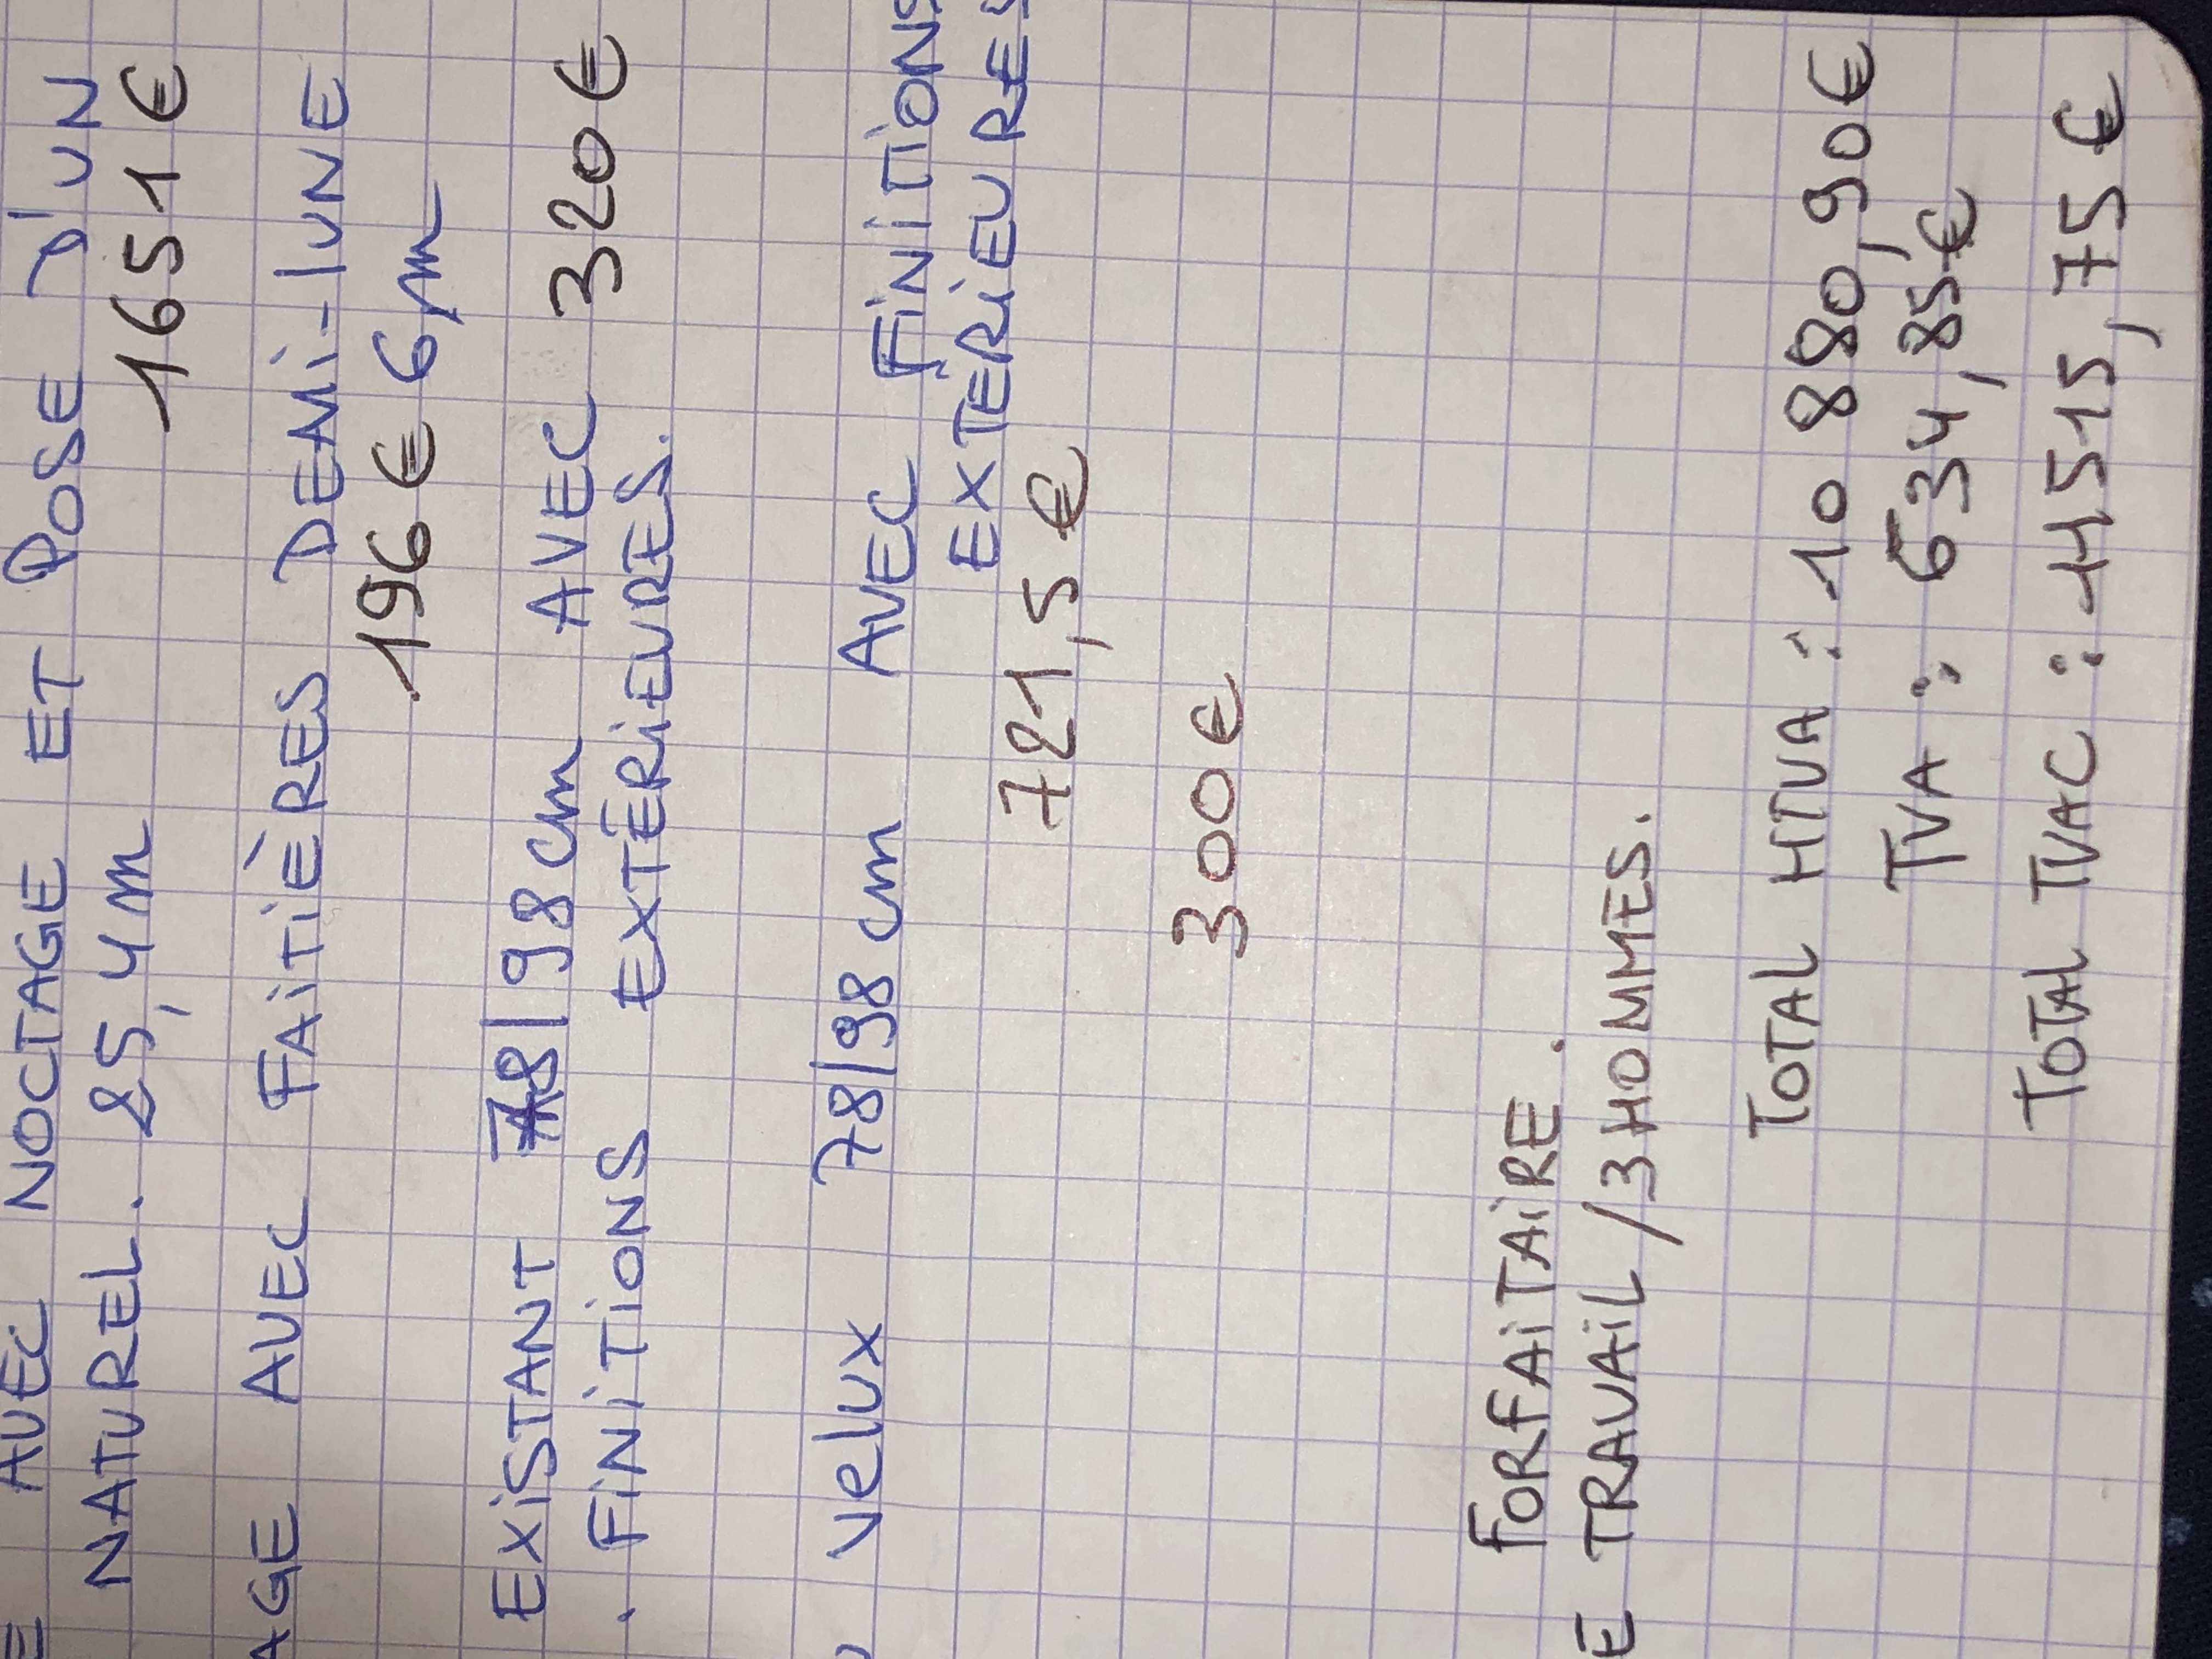 AVEC NOCTAGE ET POSE D'UN
NATUREL. 25,4m 1651€
AGE AVEC FAITIÈRES DEMI-lUNE
196€ 6m
EXISTANT 78/98cm AVEC 320€
. FINITIONS EXTÉRIEURES.
Velux 78/98 cm AVEC FINITIONS
EXTÉRIEURES
721,5€
300€
FORFAITAIRE.
E TRAVAIL/3HOMMES.
TOTAL HTVA : 10 880,90€
TVA : 634,85€
TOTAL TVAC : 11515,75€